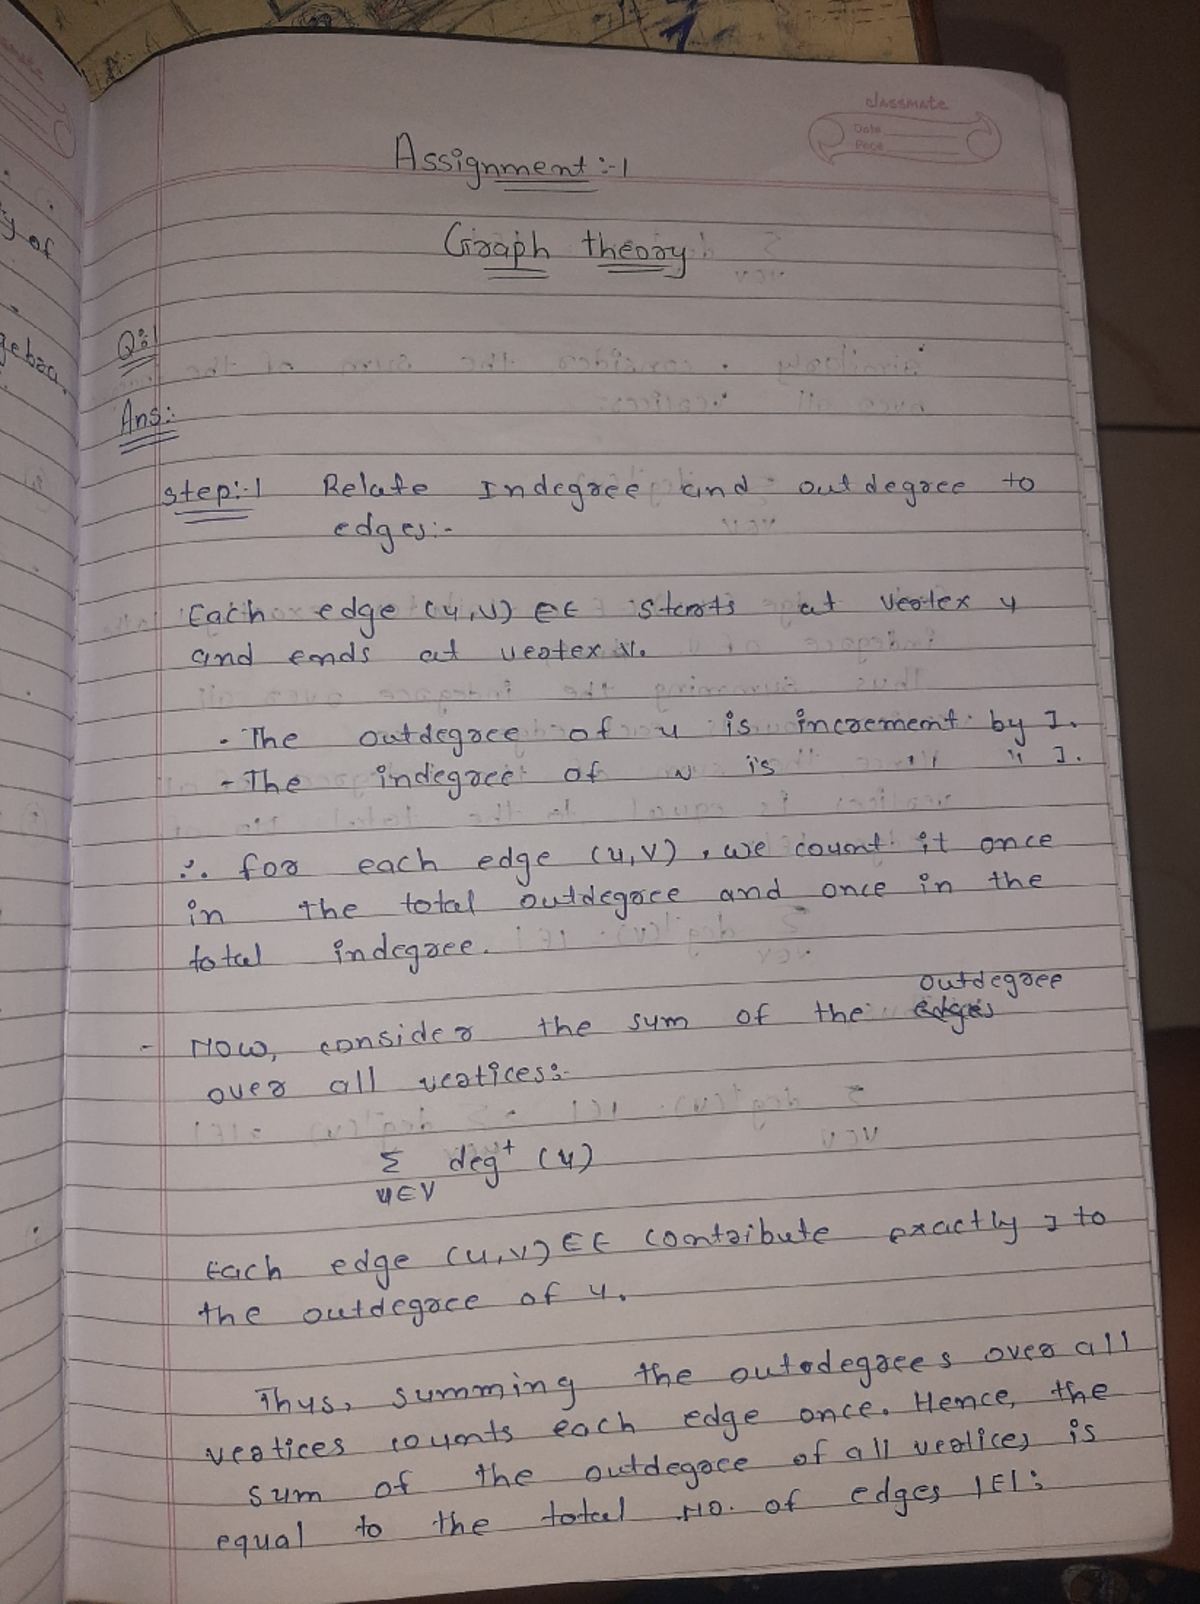 classmate
Date
Page
Assignment :- 1
Graph theory
Q:1
Ans:
step:-1 Relate Indegree and outdegree to
edges:-
Each edge (u,v) ∈ E starts at vertex u
and ends at vertex v.
- The outdegree of u is increment by 1.
- The indegree of v is " " 1.
∴ for each edge (u,v), we count it once
in the total outdegree and once in the
total indegree.
outdegree
- Now, consider the sum of the edges
over all vertices:-
Σ deg⁺ (u)
u∈V
Each edge (u,v) ∈ E contribute exactly 1 to
the outdegree of u.
Thus, summing the outodegrees over all
vertices counts each edge once. Hence, the
sum of the outdegree of all vertices is
equal to the total No. of edges |E|:
y of
gebra.